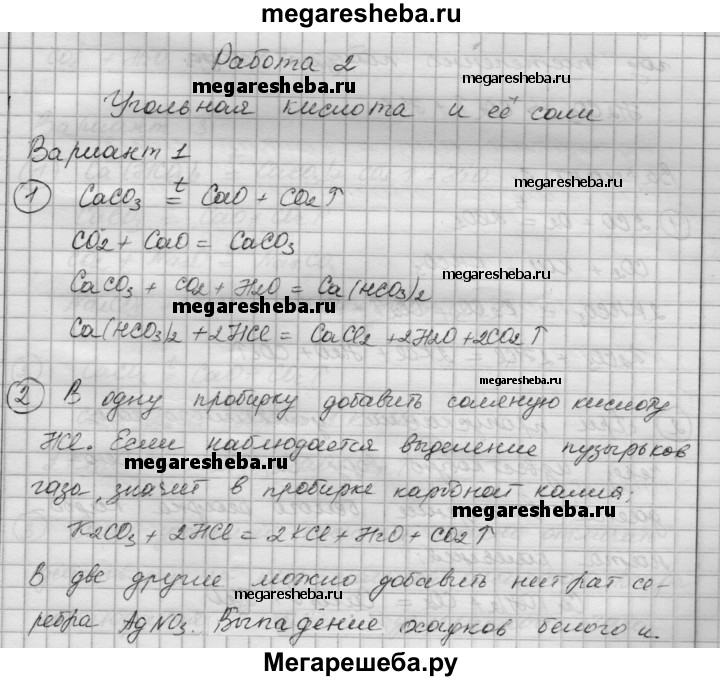 megaresheba.ru
Работа 2
megaresheba.ru megaresheba.ru
Угольная кислота и её соли
Вариант 1
megaresheba.ru
1 CaCO3 t= CaO + CO2↑
CO2 + CaO = CaCO3
megaresheba.ru
CaCO3 + CO2 + H2O = Ca(HCO3)2
megaresheba.ru
Ca(HCO3)2 + 2HCl = CaCl2 + 2H2O + 2CO2↑
megaresheba.ru
2 В одну пробирку добавить соляную кислоту
HCl. Если наблюдается выделение пузырьков
megaresheba.ru
газа, значит в пробирке карбонат калия:
megaresheba.ru
K2CO3 + 2HCl = 2KCl + H2O + CO2↑
В две другие можно добавить нитрат се-
megaresheba.ru
ребра AgNO3. Выпадение осадков белого и
megaresheba.ru
Мегарешеба.ру